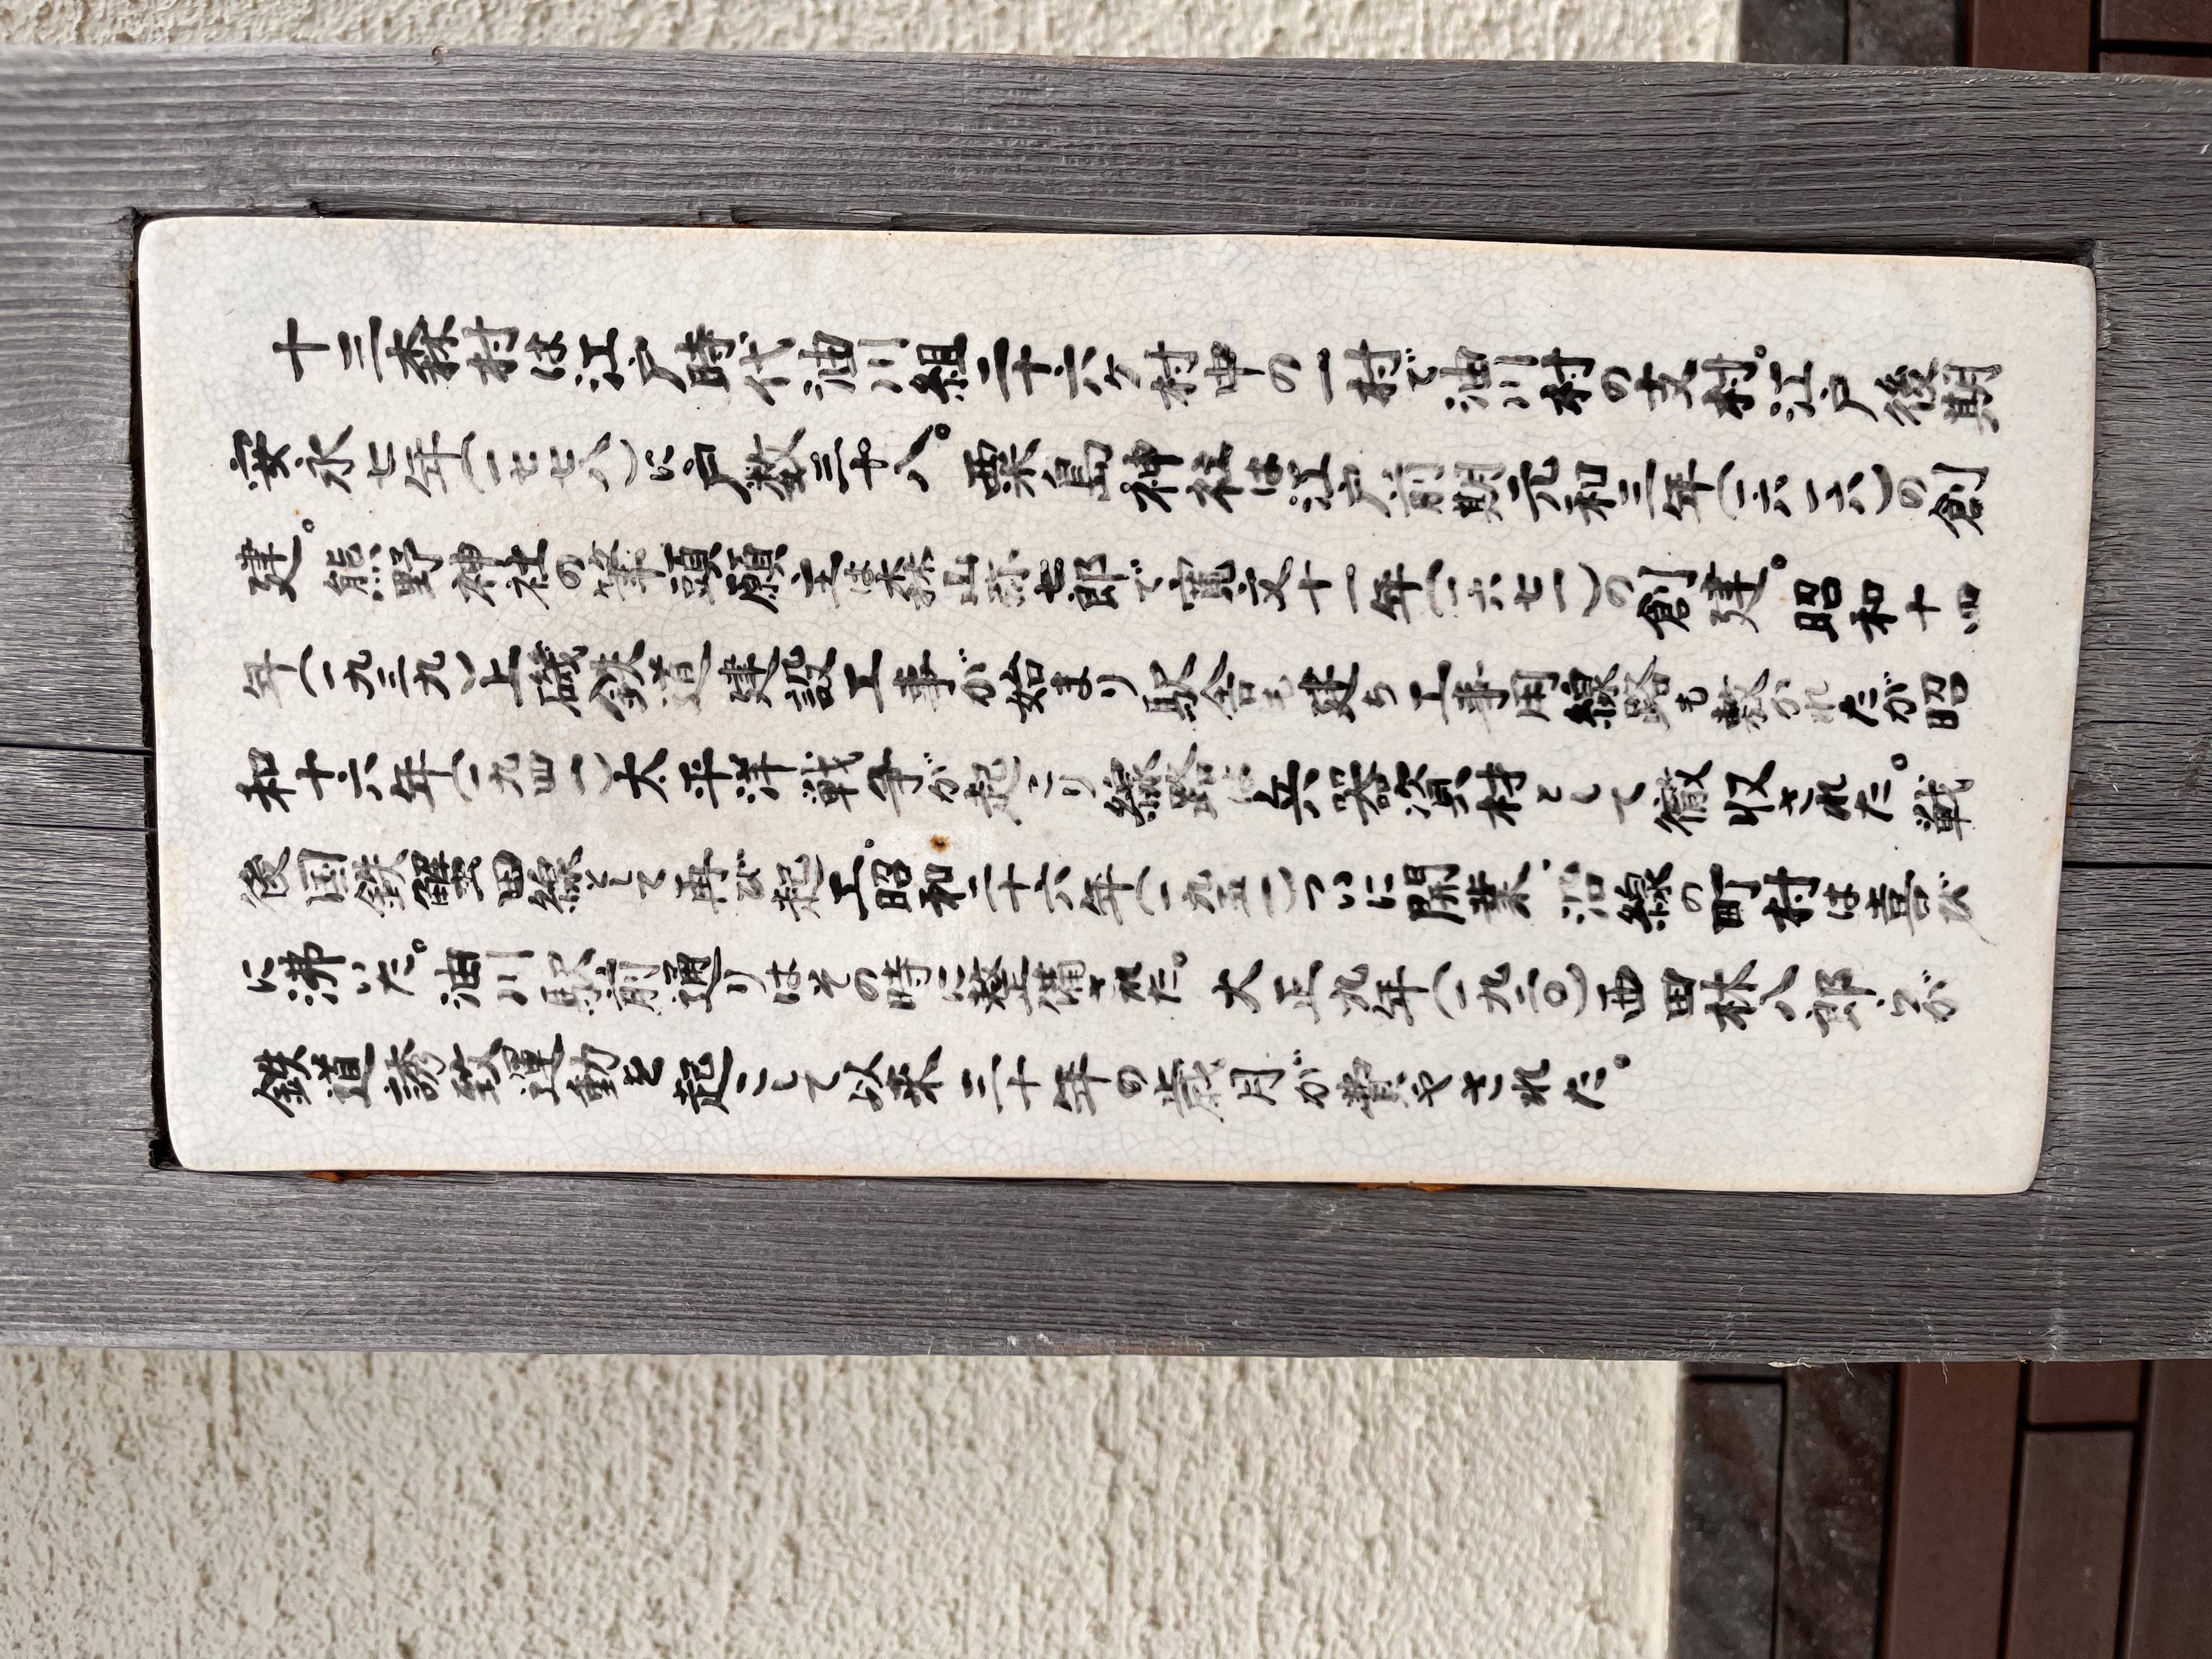 十三森村は江戸時代油川組二十六ケ村中の一村で油川村の支村。江戸後期
安永七年(一七七八)に戸数三十八。粟島神社は江戸前期元和二年(一六一六)の創
建。熊野神社の筆頭願主は森山弥七郎で寛文十一年(一六七一)の創建。昭和十四
年(一九三九)上磯鉄道建設工事が始まり駅舎も建ち工事用線路も敷かれたが昭
和十六年(一九四一)太平洋戦争が起こり線路は兵器資材として徴収された。戦
後国鉄蟹田線として再び起工。昭和二十六年(一九五一)ついに開業、沿線の町村は喜び
に沸いた。油川駅前通りはその時に整備された。大正九年(一九二〇)西田林八郎らが
鉄道誘致運動を起こして以来三十年の歳月が費やされた。